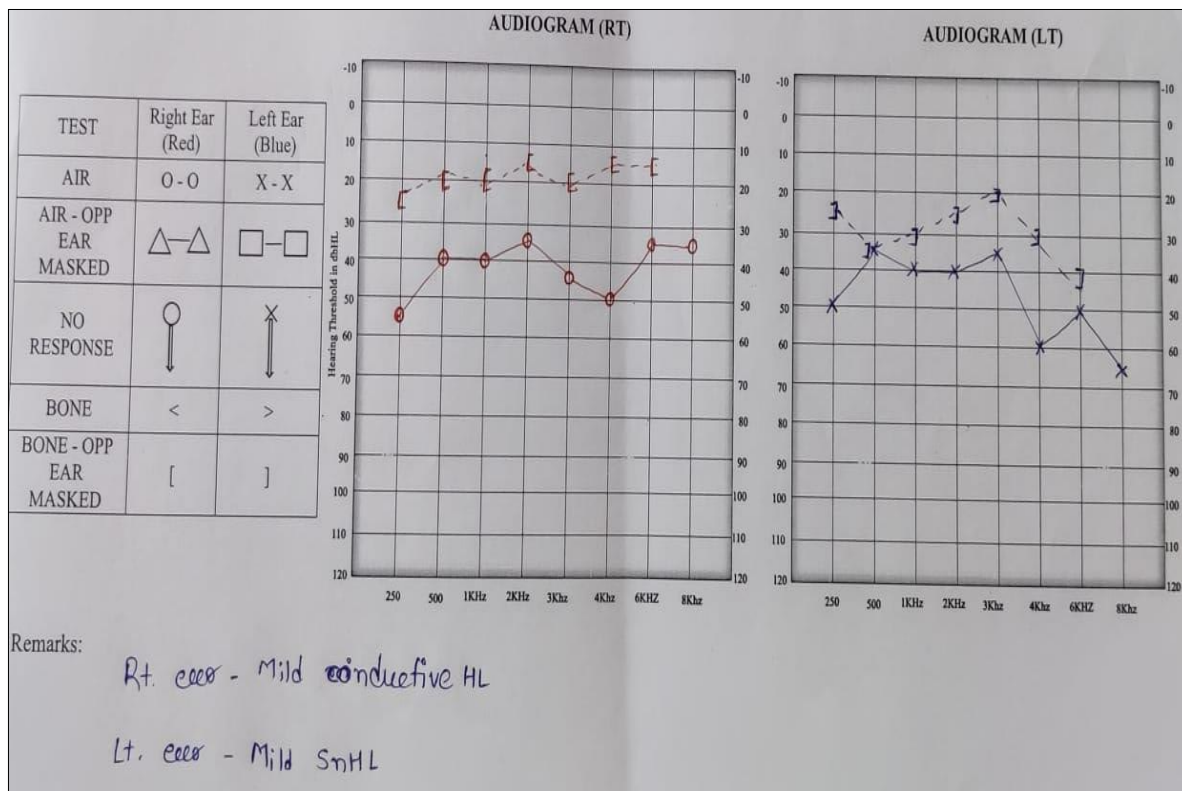 AUDIOGRAM (RT)
AUDIOGRAM (LT)
TEST
Right Ear
(Red)
Left Ear
(Blue)
AIR
O - O
X - X
AIR - OPP
EAR
MASKED
△-△
□-□
NO
RESPONSE
BONE
<
>
BONE - OPP
EAR
MASKED
[
]
Hearing Threshold in dbHL
-10
0
10
20
30
40
50
60
70
80
90
100
110
120
-10
0
10
20
30
40
50
60
70
80
90
100
110
120
250 500 1KHz 2KHz 3Khz 4Khz 6KHZ 8Khz
-10
0
10
20
30
40
50
60
70
80
90
100
110
120
-10
0
10
20
30
40
50
60
70
80
90
100
110
120
250 500 1KHz 2KHz 3Khz 4Khz 6KHZ 8Khz
Remarks:
Rt. ear - Mild conductive HL
Lt. ear - Mild SnHL